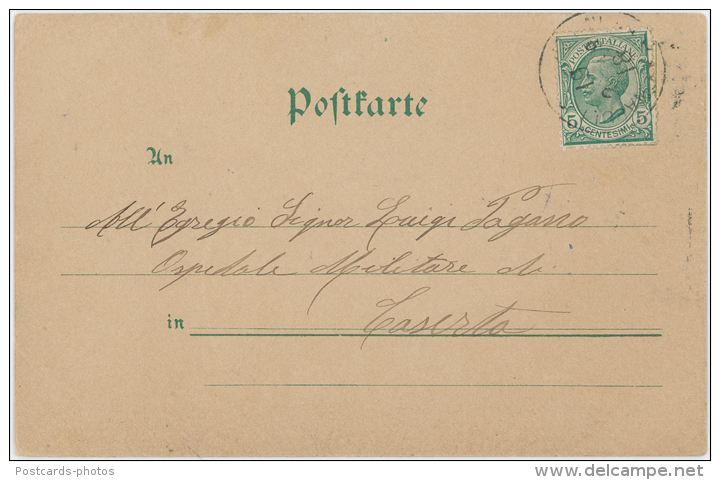 POSTE ITALIANE
5 CENTESIMI 5
Postkarte
An
All' Egregio Signor Luigi Pagano
Ospedale Militare di
in Caserta
Postcards-photos
www.delcampe.net